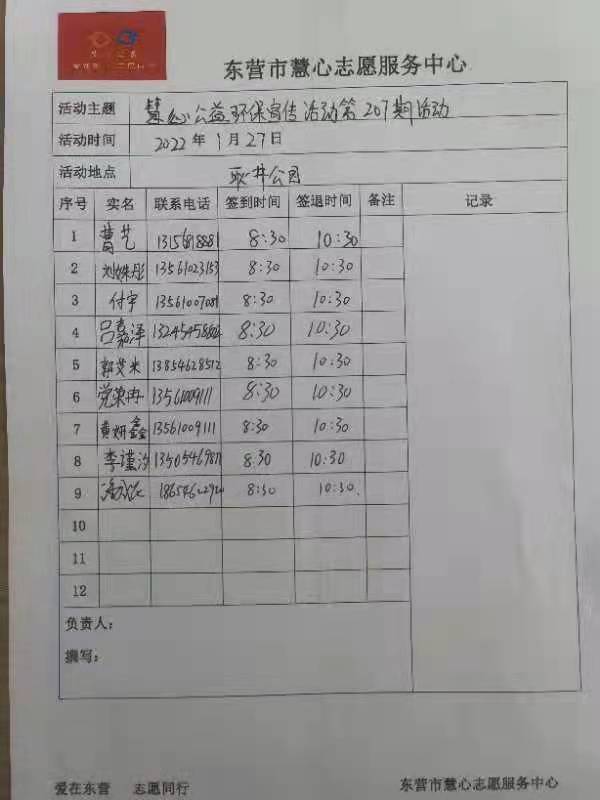 东营市慧心志愿服务中心
活动主题 慧心公益环保宣传活动第207期活动
活动时间 2022年1月27日
活动地点 公园
序号 实名 联系电话 签到时间 签退时间 备注 记录
1 曹艺 8:30 10:30
2 刘姝彤 13561023153 8:30 10:30
3 付宇 13561007081 8:30 10:30
4 吕嘉泽 8:30 10:30
5 郭艾米 13854628512 8:30 10:30
6 党染冉 13561009111 8:30 10:30
7 黄妍鑫 13561009111 8:30 10:30
8 李谨汐 8:30 10:30
9 8:30 10:30
10
11
12
负责人:
撰写:
爱在东营 志愿同行 东营市慧心志愿服务中心